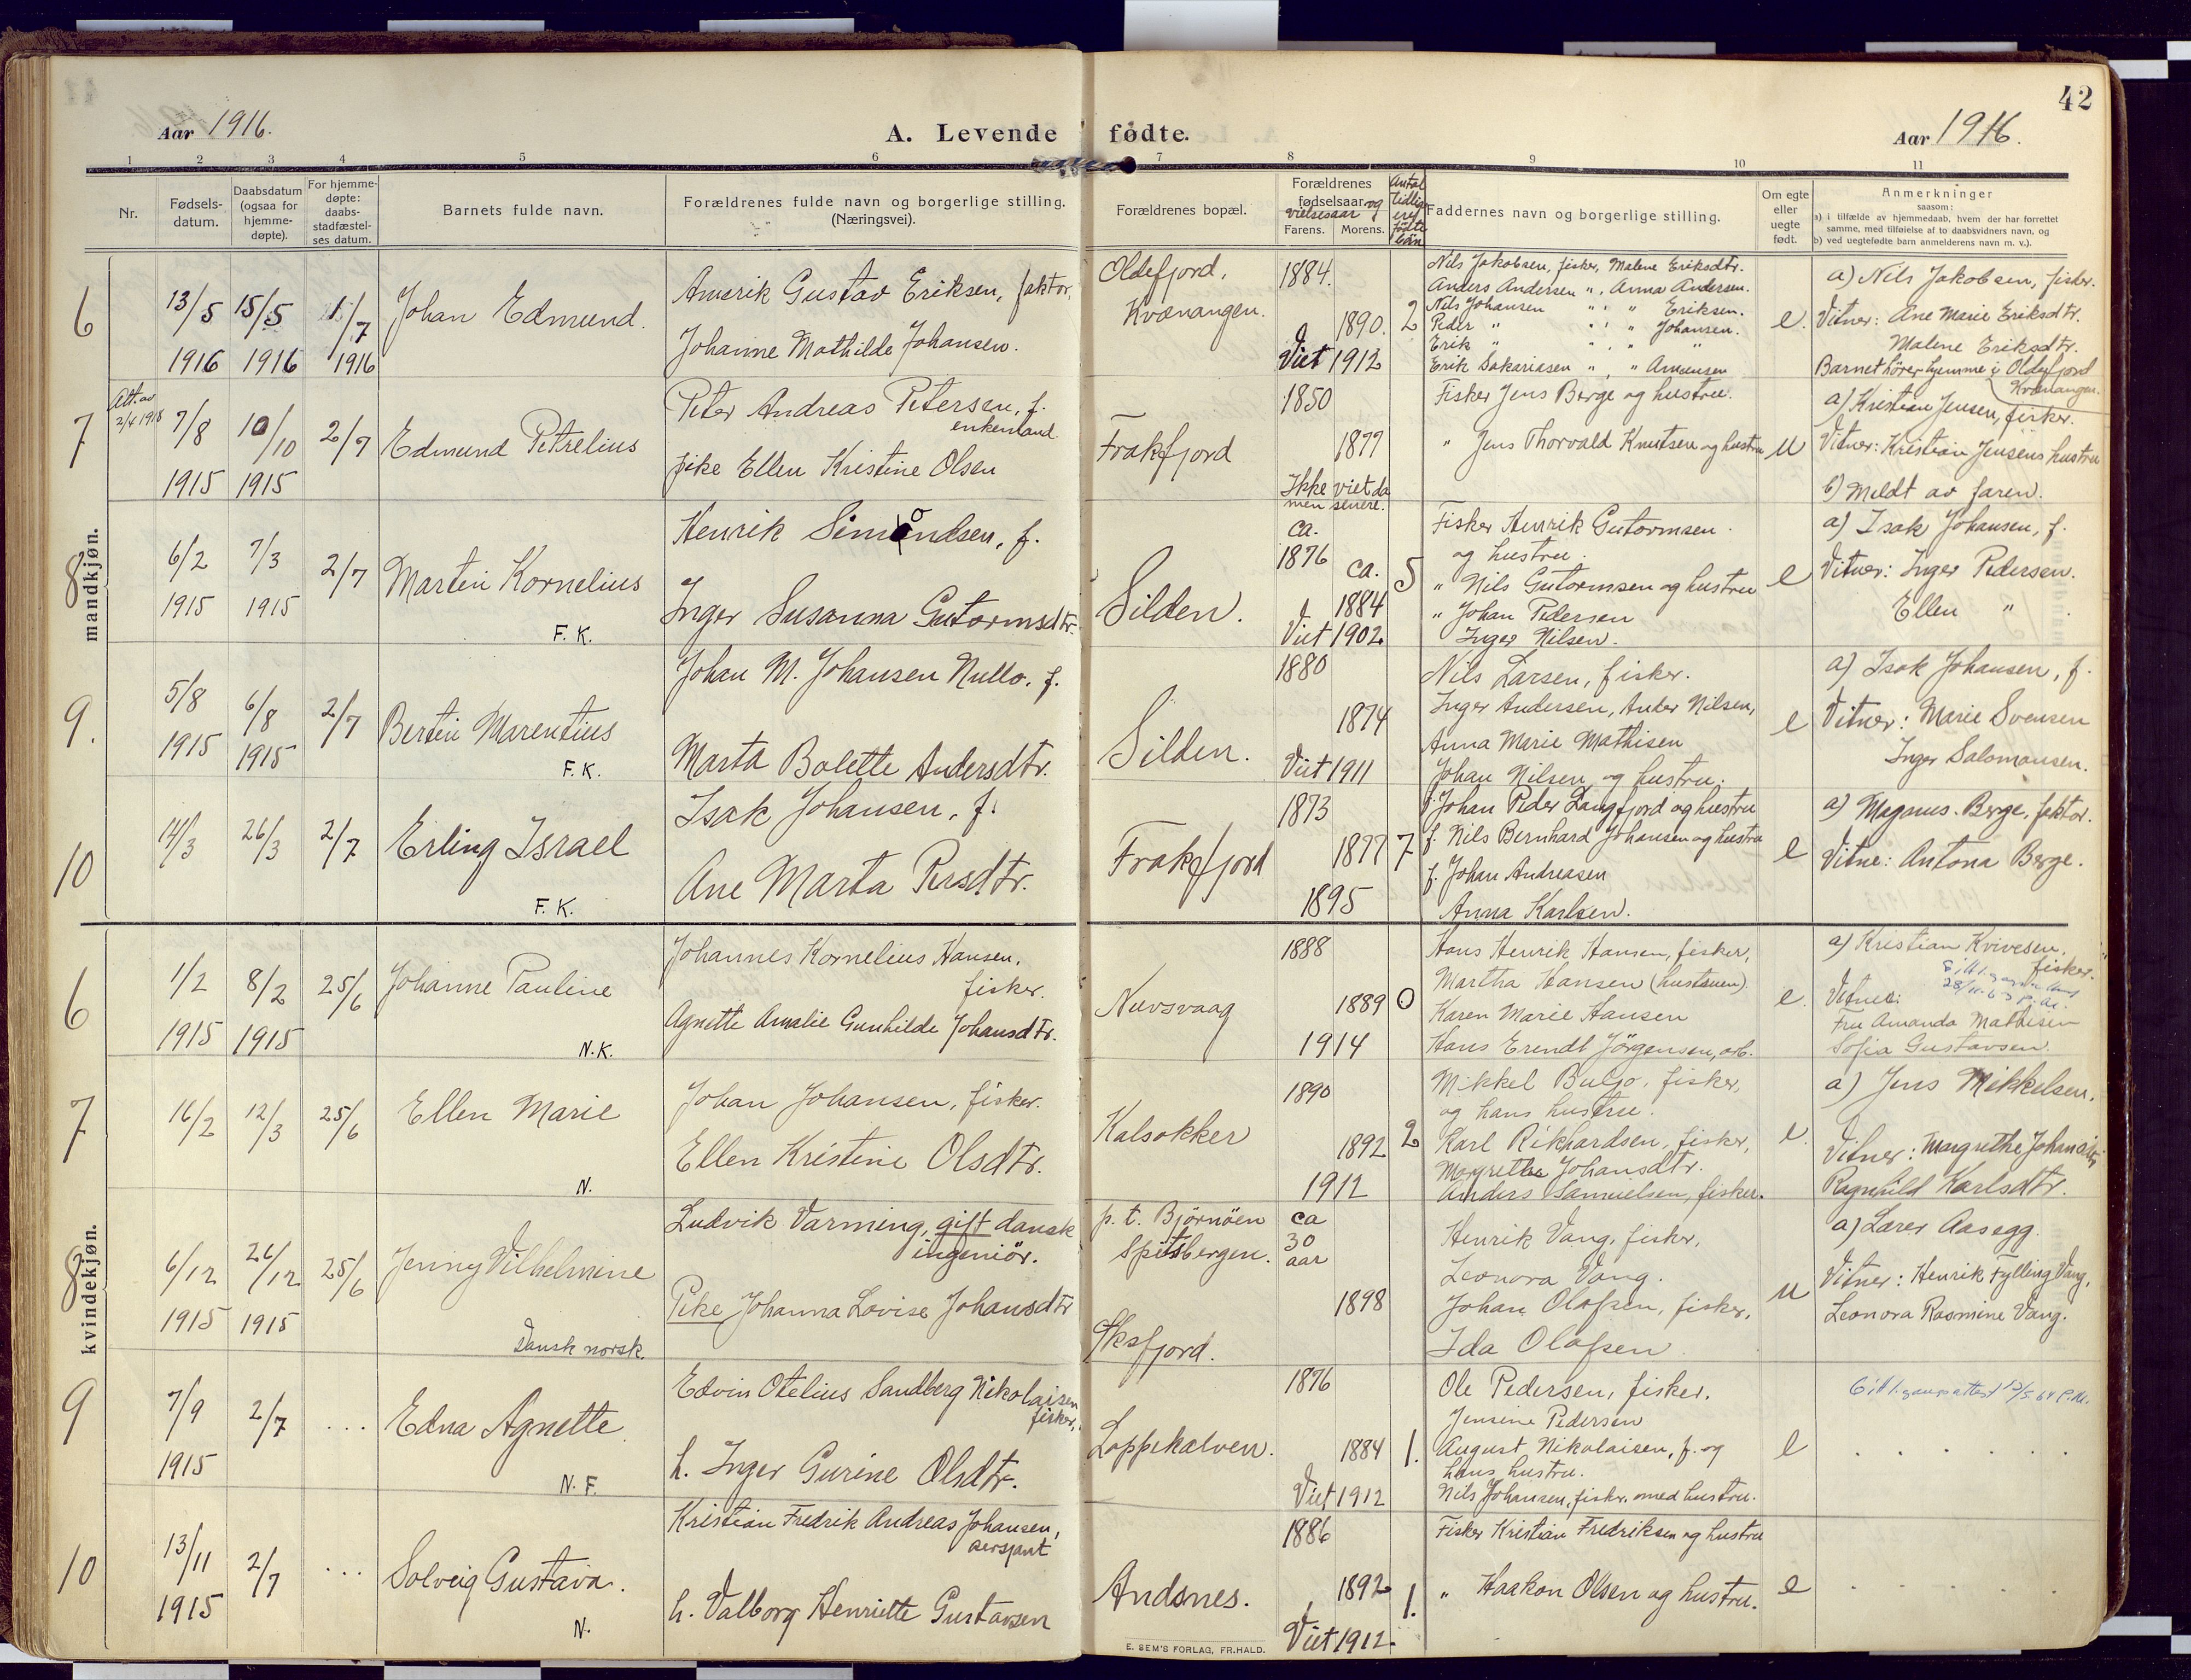 42
Aar 1916.
A. Levende fødte.
Aar 1916.
1 2 3 4 5 6 7 8 9 10 11
Nr.
Fødsels-
datum.
Daabsdatum
(ogsaa for
hjemme-
døpte).
For hjemme-
døpte:
daabs-
stadfæstel-
ses datum.
Barnets fulde navn.
Forældrenes fulde navn og borgerlige stilling.
(Næringsvei).
Forældrenes bopæl.
Forældrenes
fødselsaar og
vielsesaar
Farens. Morens.
Antal
tidlige
ere
fødte
børn
Faddernes navn og borgerlige stilling.
Om egte
eller
uegte
født.
Anmerkninger
saasom:
a) i tilfælde av hjemmedaab, hvem der har forrettet
samme, med tilføielse af to daabsvidners navn, og
b) ved uegtefødte barn anmelderens navn m. v.).
mandkjøn.
6
13/5 15/5 1/7
1916 1916 1916
Johan Edmund.
Amerik Gustav Eriksen, faktor,
Johanne Mathilde Johansen.
Oldefjord,
Kvænangen.
1884.
1890. 2
Viet 1912
Nils Jakobsen, fisker, Malene Eriksdtr.
Anders Andersen ", Anna Andersen.
Nils Johansen " " " Eriksen.
Peder " " " " Johansen.
Erik " " " "
Erik Sakariasen " , " Amunsen
e.
a) Nils Jakobsen, fisker.
Vitner: Ane Marie Eriksdtr.
Malene Eriksdtr.
Barnet hører hjemme i Oldefjord
Kvænangen.
7
Att. av
2/4 1918
7/8 10/10 2/7
1915 1915
Edmund Petrelius
Peter Andreas Petersen, f.
enkemand
pike Ellen Kristine Olsen
Frakfjord
1850
1877
Ikke viet da
men senere.
Fisker Jens Berge og hustru.
" Jens Thorvald Knutsen og hustru
u
a) Kristian Jensen, fisker.
Vitner: Kristian Jensens hustru
b) Meldt av faren.
8
6/2 7/3 2/7
1915 1915
Martin Kornelius
F. K.
Henrik Simondsen, f.
Inger Susanna Gutormsdtr.
Silden.
ca.
1876
ca.
1884
5
Viet 1902
Fisker Henrik Gutormsen
og hustru.
" Nils Gutormsen og hustru
" Johan Pedersen
Inger Nilsen.
e
a) Isak Johansen, f.
Vitner: Inger Pedersen.
Ellen "
9.
5/8 6/8 2/7
1915 1915
Bertin Marentius
F. K.
Johan M. Johansen Nullo. f.
Marta Bolette Andersdtr.
Silden.
1880
1874
Viet 1911
Nils Larsen, fisker.
Inger Andersen, Ander Nilsen,
Anna Marie Mathisen
Johan Nilsen og hustru.
e
a) Isak Johansen, f.
Vitner: Marie Svensen
Inger Salomonsen.
10
14/3 26/3 2/7
Erling Israel
F. K.
Isak Johansen, f.
Ane Marta Persdtr.
Frakfjord
1873
1877 7
1895
f. Johan Peder Langfjord og hustru
f. Nils Bernhard Johansen og hustru
f. Johan Andreasen
Anna Karlsen.
e
a) Magnus Berge, faktor.
Vitne: Antona Berge.
kvindekjøn.
6
1/2 8/2 25/6
1915 1915
Johanne Pauline
N. K.
Johannes Kornelius Hansen,
fisker.
Agnette Amalie Gunhilde Johansdtr.
Nuvsvaag
1888
1889 0
1914
Hans Henrik Hansen, fisker,
Martha Hansen (hustruen).
Karen Marie Hansen
Hans Erendt Jörgensen, arb.
e.
a) Kristian Kvivesen,
fisker.
Vitner:
Fru Amanda Mathisen
Sofia Gustavsen.
7
16/2 12/3 25/6
Ellen Marie
N.
Johan Johansen, fisker.
Ellen Kristine Olsdtr.
Kalsokker
1890
1892 2
1912
Mikkel Buljo, fisker,
og hans hustru.
Karl Rikhardsen, fisker,
Margrethe Johansdtr.
Anders Samuelsen, fisker.
e.
a) Jens Mikkelsen.
Vitner: Margrethe Johansdtr
Ragnhild Karlsdtr.
8
6/12 26/12 25/6
1915 1915
Jenny Vilhelmine
Dansk norsk.
Ludvik Varming, gift dansk
ingeniör.
Pike Johanna Lovise Johansdtr
p. t. Björnöen
Spitsbergen.
Øksfjord.
ca
30
aar
1898
Henrik Vang, fisker,
Leonora Vang.
Johan Olafsen, fisker,
Ida Olafsen
u
a) Lærer Aasegg.
Vitner: Henrik Fylling Vang,
Leonora Rasmine Vang.
9
7/9 2/7 ...
1915
Edna Agnette
N. F.
Edvin Otelius Sandberg Nikolaisen
fisker,
h. Inger Gurine Olsdtr.
Loppekalven.
1876
1884 1.
Viet 1912
Ole Pedersen, fisker.
Jensine Pedersen
August Nikolaisen, f. og
hans hustru.
Nils Johansen, fisker, med hustru.
e
10
13/11 2/7 ...
1915
Solveig Gustava.
N.
Kristian Fredrik Andreas Johansen,
sersjant
h. Valborg Henriette Gustavsen
Andsnes.
1886
1892 1.
Viet 1912.
Fisker Kristian Fredriksen og hustru
" Haakon Olsen og hustru.
e
E. SEM'S FORLAG, FR.HALD.